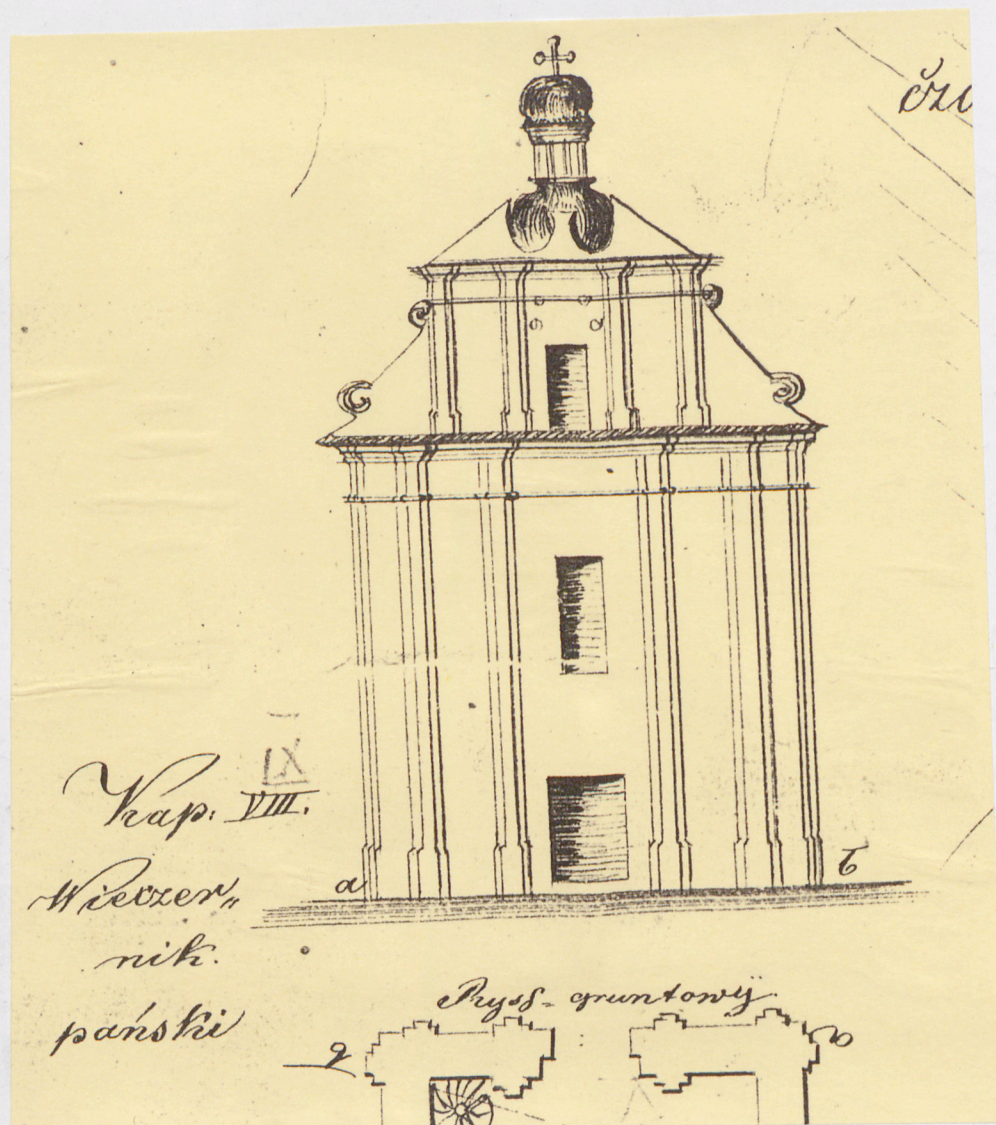 IX
Kap. VIII.
Wieczer„
nik.
pański
a b
Ryss- gruntowÿ.